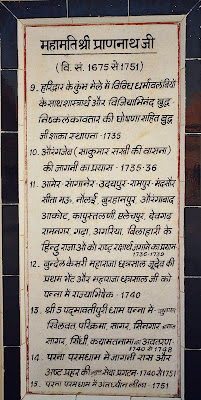 महामतिश्री प्राणनाथ जी
(वि. सं. 1675 से 1751)
९- हरिद्वार के कुंभ मेले में विविध धर्मावलंबियों
के साथ शास्त्रार्थ और विजियाभिनंद बुद्ध
निष्कलंकावतार की घोषणा सहित बुद्ध
जी शाका स्थापना - 1735
10- औरंगजेब (साकुमार सखी की वासना)
की जागनी का प्रयास - 1735-36
11- आमेर - सांगानेर - उदयपुर - रामपुर - मंदसौर
सीता मऊ, नौलाई, बुरहानपुर, औरंगाबाद
आकोट, कापुस्तलनी, एलिचपुर, देवगढ
रामनगर गढ़ा, अगरिया, बिलहरी के
हिन्दू राजाओं को राष्ट्र रक्षार्थ जगाने का प्रयास
1736-1739
12- बुन्देल केसरी महाराजा छत्रसाल जूदेव की
प्रथम भेंट और महाराजा छत्रसाल जी को
पन्ना में राज्याभिषेक - 1740
13- श्री 5 पदमावतीपुरी धाम पन्ना में -
खिलवत परिक्रमा, सागर, सिनगार
सागर, सिंधी कयामतनामा का अवतरण
1740 से 1748
14- पन्ना परमधाम में जागनी रास और
अष्ट प्रहर की सेवा प्रारंभ - 1740 से 1751
15- पन्ना परमधाम में अंतर्ध्यान लीला - 1751